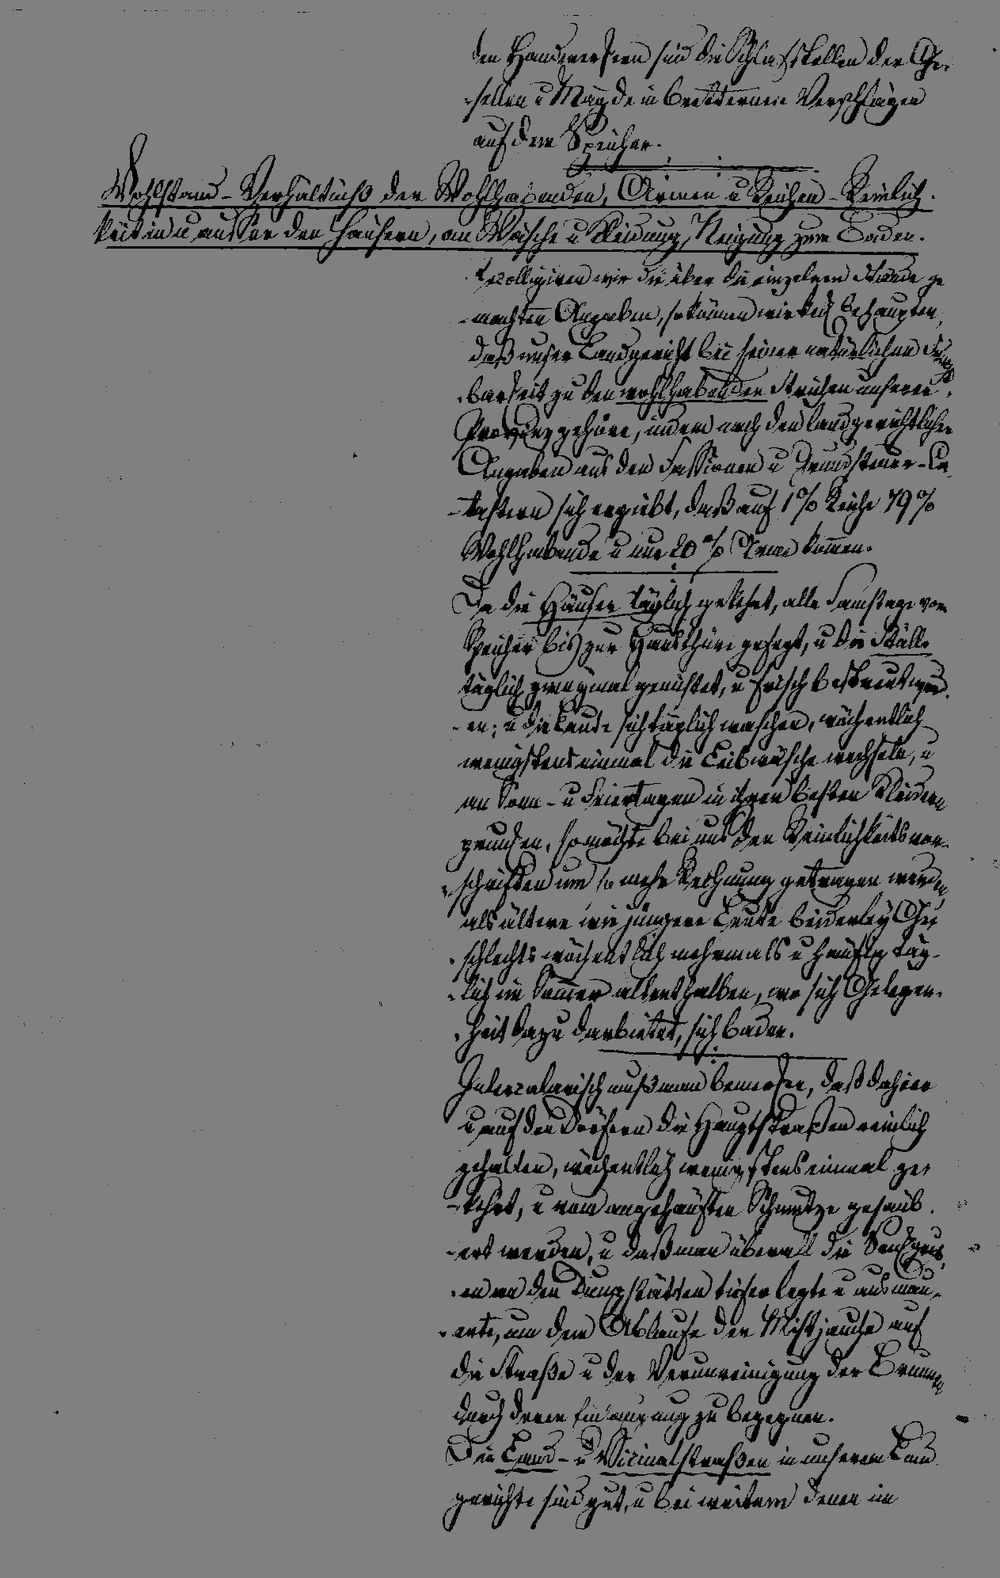 den Handwerkern sind die Schlafstellen der Ge-
-sellen u Mägde in bretternen Verschlägen
auf dem Speicher.
Wohlstand - Verhältniß der Wohlhabenden, Armen u Reichen - Reinlich-
keit in u ausser den Häusern, an Wäsche u Kleidung, Neigung zum Baden.
Recolligiren wir die über die einzelnen Stände ge
-machten Angaben, so können wir keck behaupten,
daß unser Landgericht bei seiner natürlichen Frucht
-barkeit zu den wohlhabenden Strichen unserer
Provinz gehöre, indem nach den landgerichtlichen
Angaben aus den Fassionen u Grundsteuer-Ca-
-tastern sich ergiebt, daß auf 1% Reiche 79%
Wohlhabende u nur 20% Arme kommen.
Da die Häuser täglich gekehrt, alle Samstage vom
Speicher bis zur Hausthüre gefegt, u die Ställe
täglich zweymal gemistet, u frisch bestreut werd
-en; u die Leute sich täglich waschen, wöchentlich
wenigstens einmal die Leibwäsche wechseln, u
an Sonn- u Feiertagen in ihren besten Kleidern
prunken, so möchte bei uns den Reinlichkeitsvor-
-schriften um so mehr Rechnung getragen werden,
als ältere wie jüngere Leute beiderley Ge-
-schlechts wöchentlich mehrmals u häufig täg-
-lich im Sommer allenthalben, wo sich Gelegen-
-heit dazu darbietet, sich baden.
Intercalarisch muß man bemerken, daß dahier
u auf den Dörfern die Hauptstraßen reinlich
gehalten, wöchentlich wenigstens einmal ge-
-kehrt, u vom angehäuften Schmutze gesäub-
-ert werden, u daß man überall die Senkgrub-
-en an den Dungstätten tiefer legte u ausmau-
-erte, um dem Ablaufe der Mistjauche auf
die Straße u der Verunreinigung der Brunnen
durch deren zu begegnen.
Die Land- u Vicinalstraßen in unserem Land
gerichte sind gut, u bei weitem denen im